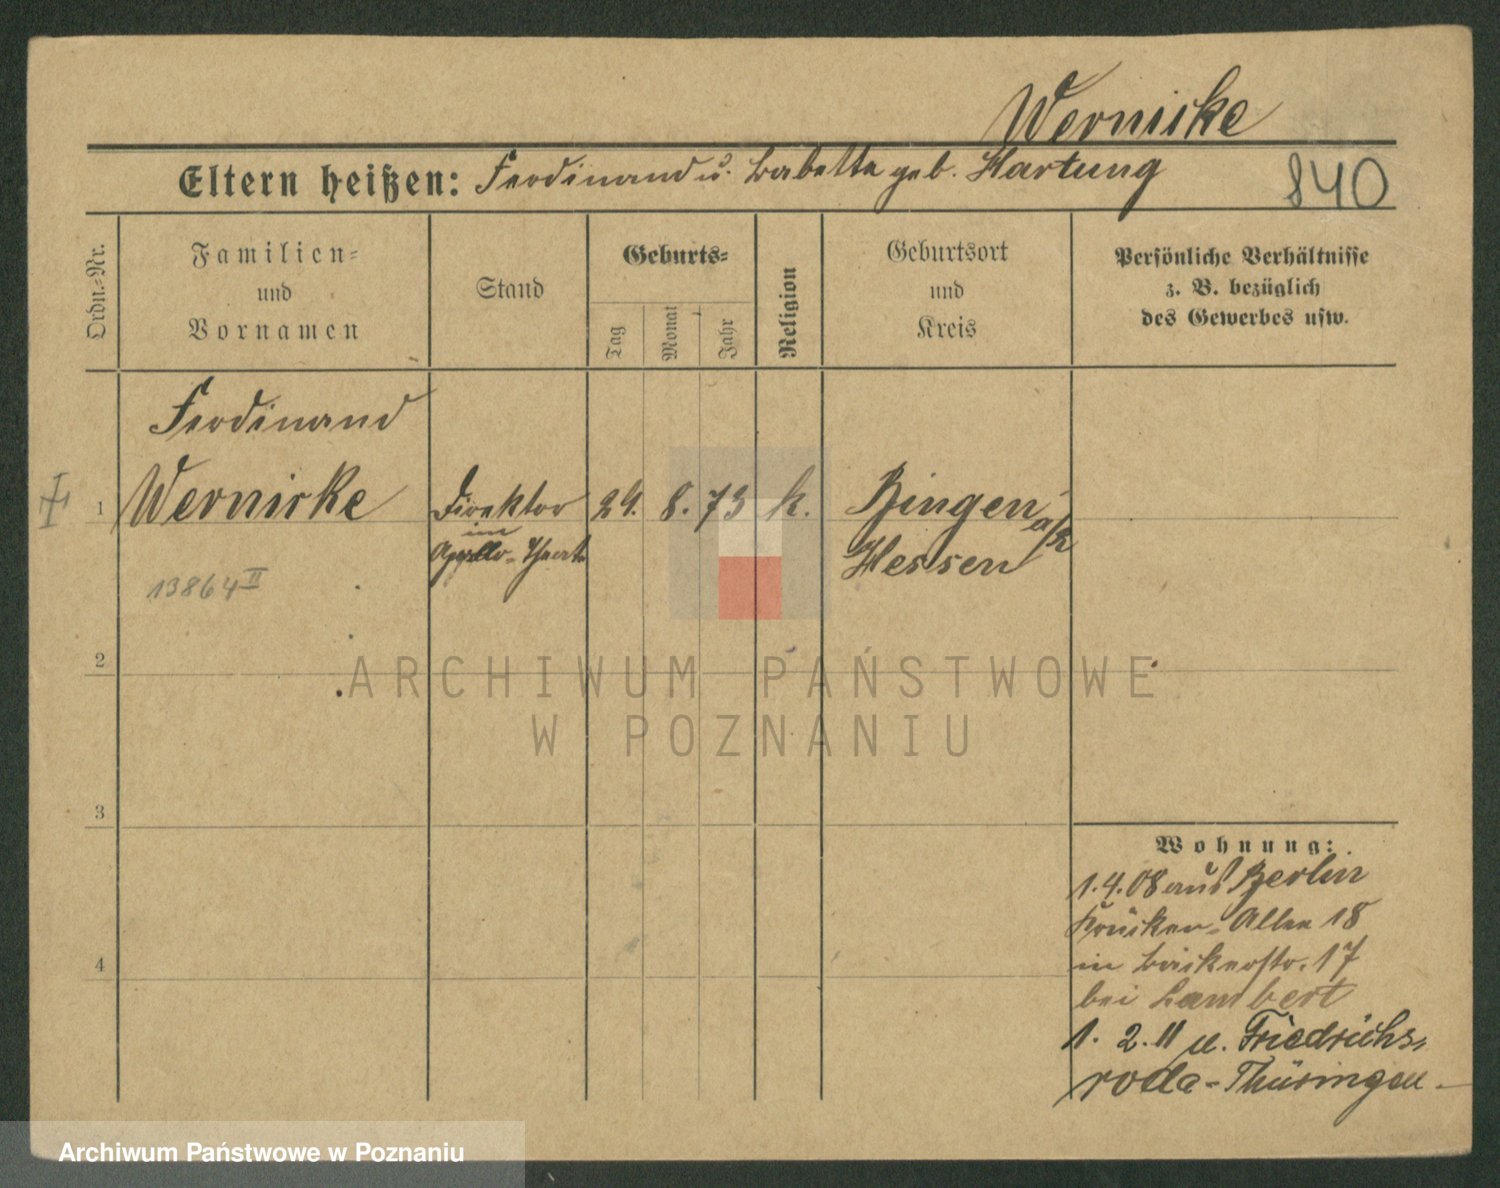 Wernicke
Eltern heißen: Ferdinand u. Babette geb. Hartung
840
Ordn.-Nr.
Familien-
und
Vornamen
Stand
Geburts-
Tag
Monat
Jahr
Religion
Geburtsort
und
Kreis
Persönliche Verhältnisse
z. B. bezüglich
des Gewerbes usw.
Ferdinand
1 Wernicke Direktor 24. 8. 73 k. Bingen a/R
im
Apollo-Theater
Hessen
13864 II
2
ARCHIWUM PAŃSTWOWE
W POZNANIU
3
Wohnung:
1.4.08 aus Berlin
Allee 18
4
in Bäckerstr. 17
bei Lambert
1. 2. 11 n. Friedrichs-
roda-Thüringen
Archiwum Państwowe w Poznaniu